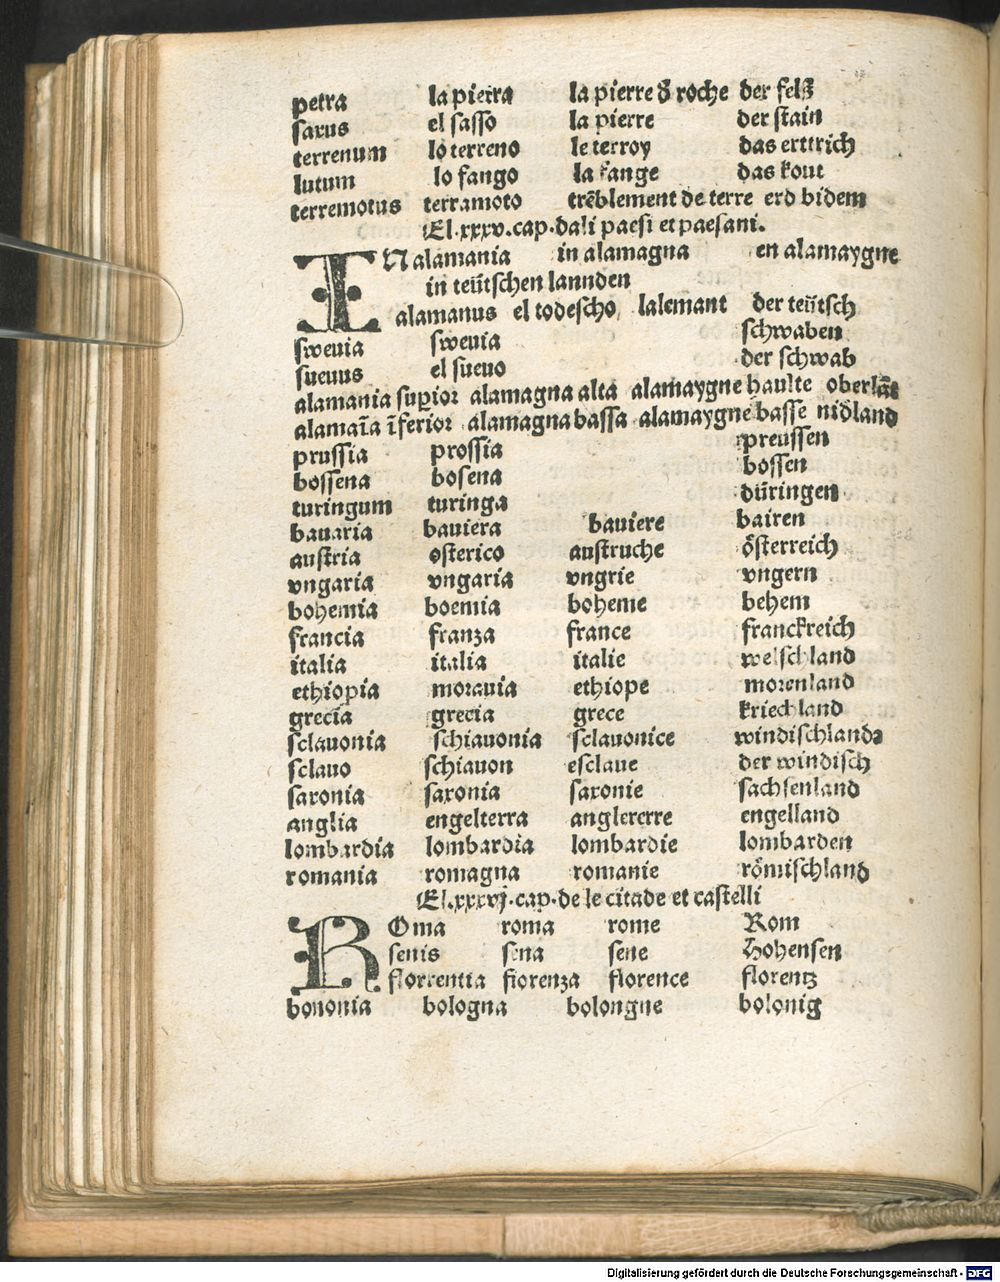 petra la pietra la pierre ð roche der felß
saxus el sasso la pierre der stain
terrenum lo terreno le terroy das erttrich
lutum lo fango la fange das kout
terremotus terramoto trẽblement de terre erd bidem
El.xxxv.cap.dali paesi et paesani.
IN alamania in alamagna en alamaygne
in teütschen lannden
alamanus el todescho lalemant der teütsch
swevia swevia schwaben
suevus el suevo der schwab
alamania suꝑior alamagna alta alamaygne haulte oberlãt
alamaĩa ĩferior alamagna bassa alamaygne basse nidland
prussia prossia preussen
bossena bosena bossen
turingum turinga düringen
bavaria baviera baviere bairen
austria osterico austruche österreich
vngaria vngaria vngrie vngern
bohemia boemia boheme behem
francia franza france franckreich
italia italia italie welschland
ethiopia moravia ethiope morenland
grecia grecia grece kriechland
sclavonia schiavonia sclavonice windischlands
sclavo schiavon esclave der windisch
saxonia saxonia saxonie sachsenland
anglia engelterra angleterre engelland
lombardia lombardia lombardie lombarden
romania romagna romanie römischland
El.xxxvj.cap.de le citade et castelli
ROma roma rome Rom
senis sena sene Hohensen
florrentia fiorenza florence florentz
bononia bologna bolongne bolonig
Digitalisierung gefördert durch die Deutsche Forschungsgemeinschaft - DFG